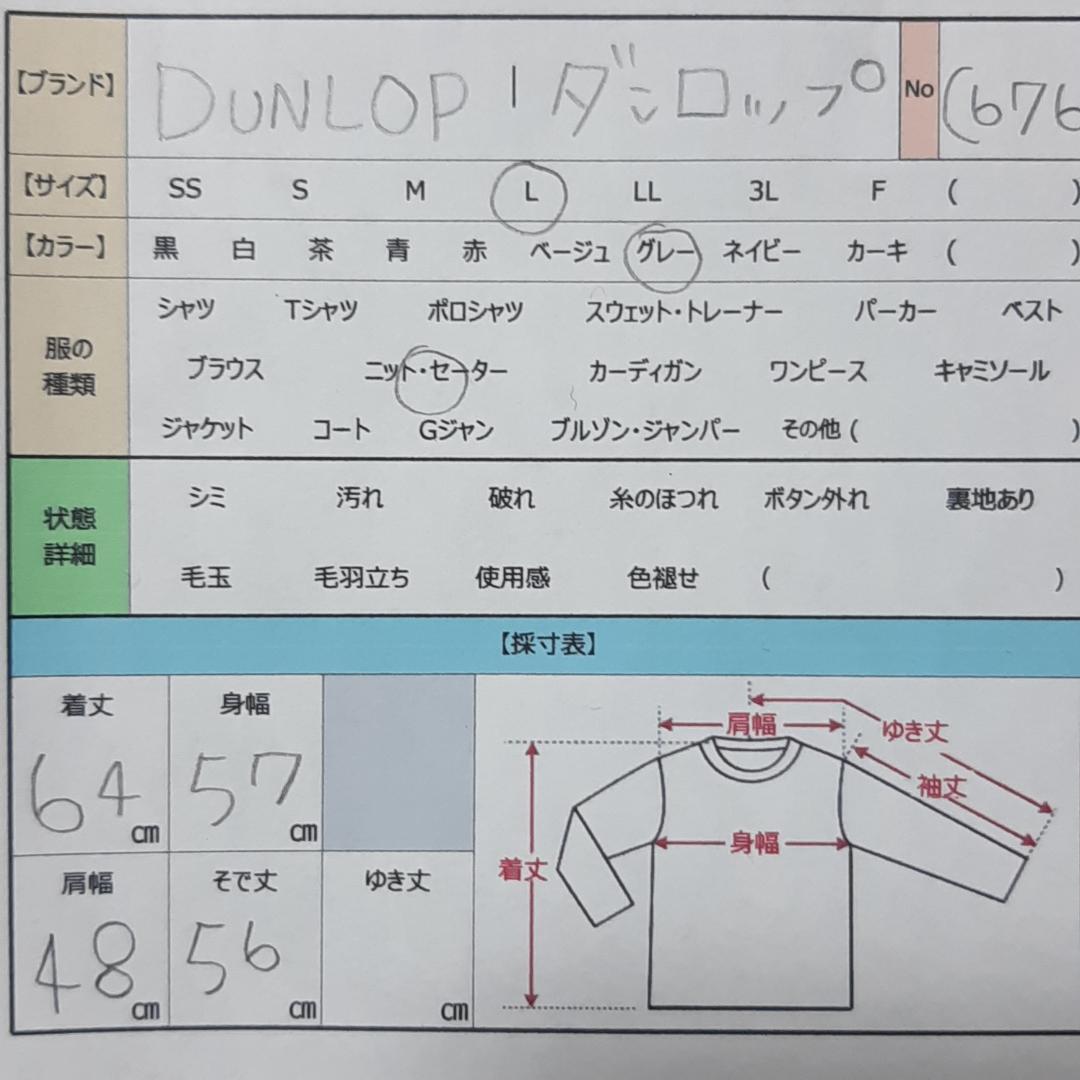 【ブランド】 DUNLOP | ダンロップ No (676
【サイズ】 SS S M L LL 3L F ( )
【カラー】 黒 白 茶 青 赤 ベージュ グレー ネイビー カーキ ( )
服の
種類
シャツ Tシャツ ポロシャツ スウェット・トレーナー パーカー ベスト
ブラウス ニット・セーター カーディガン ワンピース キャミソール
ジャケット コート Gジャン ブルゾン・ジャンパー その他 ( )
状態
詳細
シミ 汚れ 破れ 糸のほつれ ボタン外れ 裏地あり
毛玉 毛羽立ち 使用感 色褪せ ( )
【採寸表】
着丈 身幅
64 cm 57 cm
肩幅 そで丈 ゆき丈
48 cm 56 cm cm
肩幅
ゆき丈
袖丈
身幅
着丈